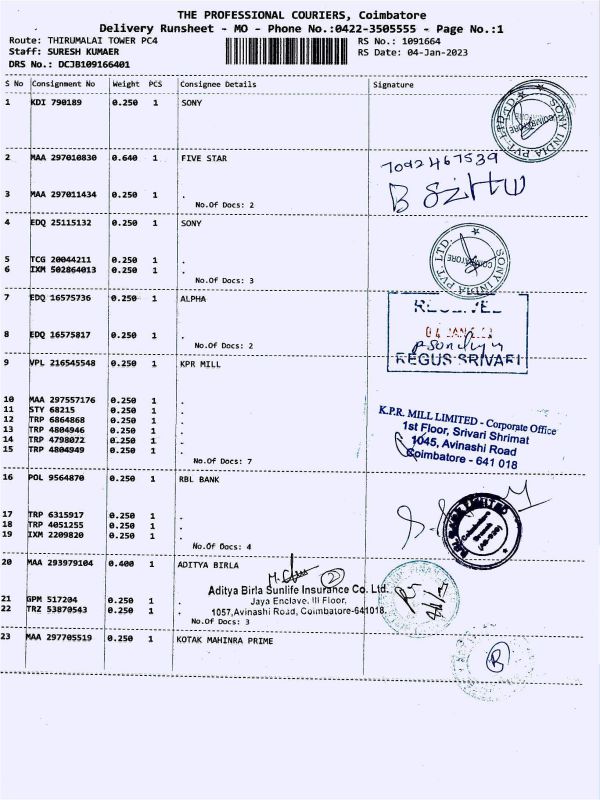 THE PROFESSIONAL COURIERS, Coimbatore
Delivery Runsheet - MO - Phone No.:0422-3505555 - Page No.:1
Route: THIRUMALAI TOWER PC4 RS No.: 1091664
Staff: SURESH KUMAER RS Date: 04-Jan-2023
DRS No.: DCJB109166401
S No Consignment No Weight PCS Consignee Details Signature
1 KDI 790189 0.250 1 SONY
SONY INDIA PVT. LTD.
COIMBATORE
2 MAA 297010830 0.640 1 FIVE STAR
7092467539
3 MAA 297011434 0.250 1 .
No.Of Docs: 2
4 EDQ 25115132 0.250 1 SONY
SONY INDIA PVT. LTD.
COIMBATORE
5 TCG 20044211 0.250 1 .
6 IXM 502864013 0.250 1 .
No.Of Docs: 3
7 EDQ 16575736 0.250 1 ALPHA
RECEIVED
04 JAN
8 EDQ 16575817 0.250 1 .
No.Of Docs: 2
REGUS SRIVARI
9 VPL 216545548 0.250 1 KPR MILL
10 MAA 297557176 0.250 1 .
11 STY 68215 0.250 1 .
12 TRP 6864868 0.250 1 .
13 TRP 4804946 0.250 1 .
14 TRP 4798072 0.250 1 .
15 TRP 4804949 0.250 1 .
No.Of Docs: 7
K.P.R. MILL LIMITED - Corporate Office
1st Floor, Srivari Shrimat
1045, Avinashi Road
Coimbatore - 641 018
16 POL 9564870 0.250 1 RBL BANK
17 TRP 6315917 0.250 1 .
18 TRP 4051255 0.250 1 .
19 IXM 2209820 0.250 1 .
No.Of Docs: 4
Coimbatore
20 MAA 293979104 0.400 1 ADITYA BIRLA
2
Aditya Birla Sunlife Insurance Co. Ltd.
21 GPM 517204 0.250 1 Jaya Enclave, III Floor,
22 TRZ 53870543 0.250 1 1057,Avinashi Road, Coimbatore-641018.
No.Of Docs: 3
23 MAA 297705519 0.250 1 KOTAK MAHINRA PRIME